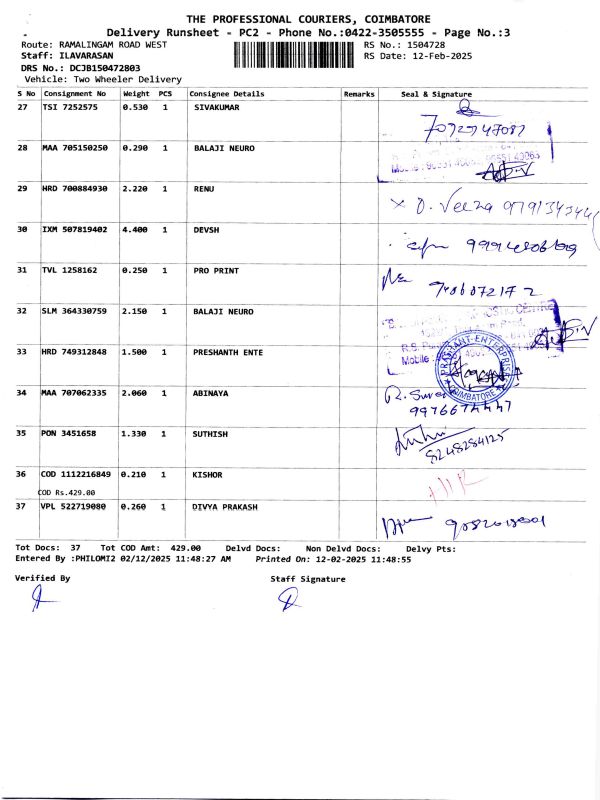 THE PROFESSIONAL COURIERS, COIMBATORE
Delivery Runsheet - PC2 - Phone No.:0422-3505555 - Page No.:3
Route: RAMALINGAM ROAD WEST RS No.: 1504728
Staff: ILAVARASAN RS Date: 12-Feb-2025
DRS No.: DCJB150472803
Vehicle: Two Wheeler Delivery
S No Consignment No Weight PCS Consignee Details Remarks Seal & Signature
27 TSI 7252575 0.530 1 SIVAKUMAR
28 MAA 705150250 0.290 1 BALAJI NEURO
29 HRD 700884930 2.220 1 RENU
30 IXM 507819402 4.400 1 DEVSH
31 TVL 1258162 0.250 1 PRO PRINT
32 SLM 364330759 2.150 1 BALAJI NEURO
33 HRD 749312848 1.500 1 PRESHANTH ENTE
PRASHANT ENTERPRISES
COIMBATORE
34 MAA 707062335 2.060 1 ABINAYA
35 PON 3451658 1.330 1 SUTHISH
8248284125
36 COD 1112216849 0.210 1 KISHOR
COD Rs.429.00
37 VPL 522719080 0.260 1 DIVYA PRAKASH
Tot Docs: 37 Tot COD Amt: 429.00 Delvd Docs: Non Delvd Docs: Delvy Pts:
Entered By :PHILOMI2 02/12/2025 11:48:27 AM Printed On: 12-02-2025 11:48:55
Verified By Staff Signature